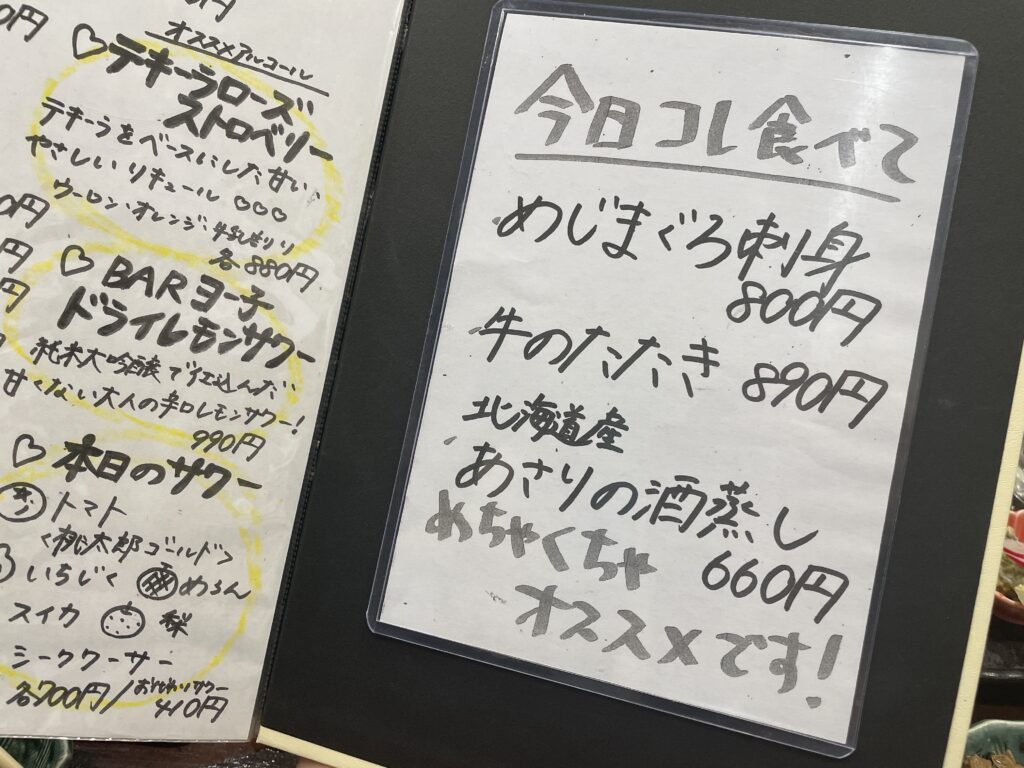 オススメアルコール
♡テキーラローズ
ストロベリー
テキーラをベースにした甘い
やさしいリキュール♡♡♡
ウーロン、オレンジ、牛乳割り
各880円
♡BARヨー子
ドライレモンサワー
純米大吟醸で仕込んだ
甘くない大人の辛口レモンサワー!
990円
♡本日のサワー
トマト
<桃太郎ゴールド>
いちじく めろん
スイカ 梨
シークワーサー
各700円/おかわりサワー
410円
今日コレ食べて
めじまぐろ刺身
800円
牛のたたき 890円
北海道産
あさりの酒蒸し
660円
めちゃくちゃ
オススメです!